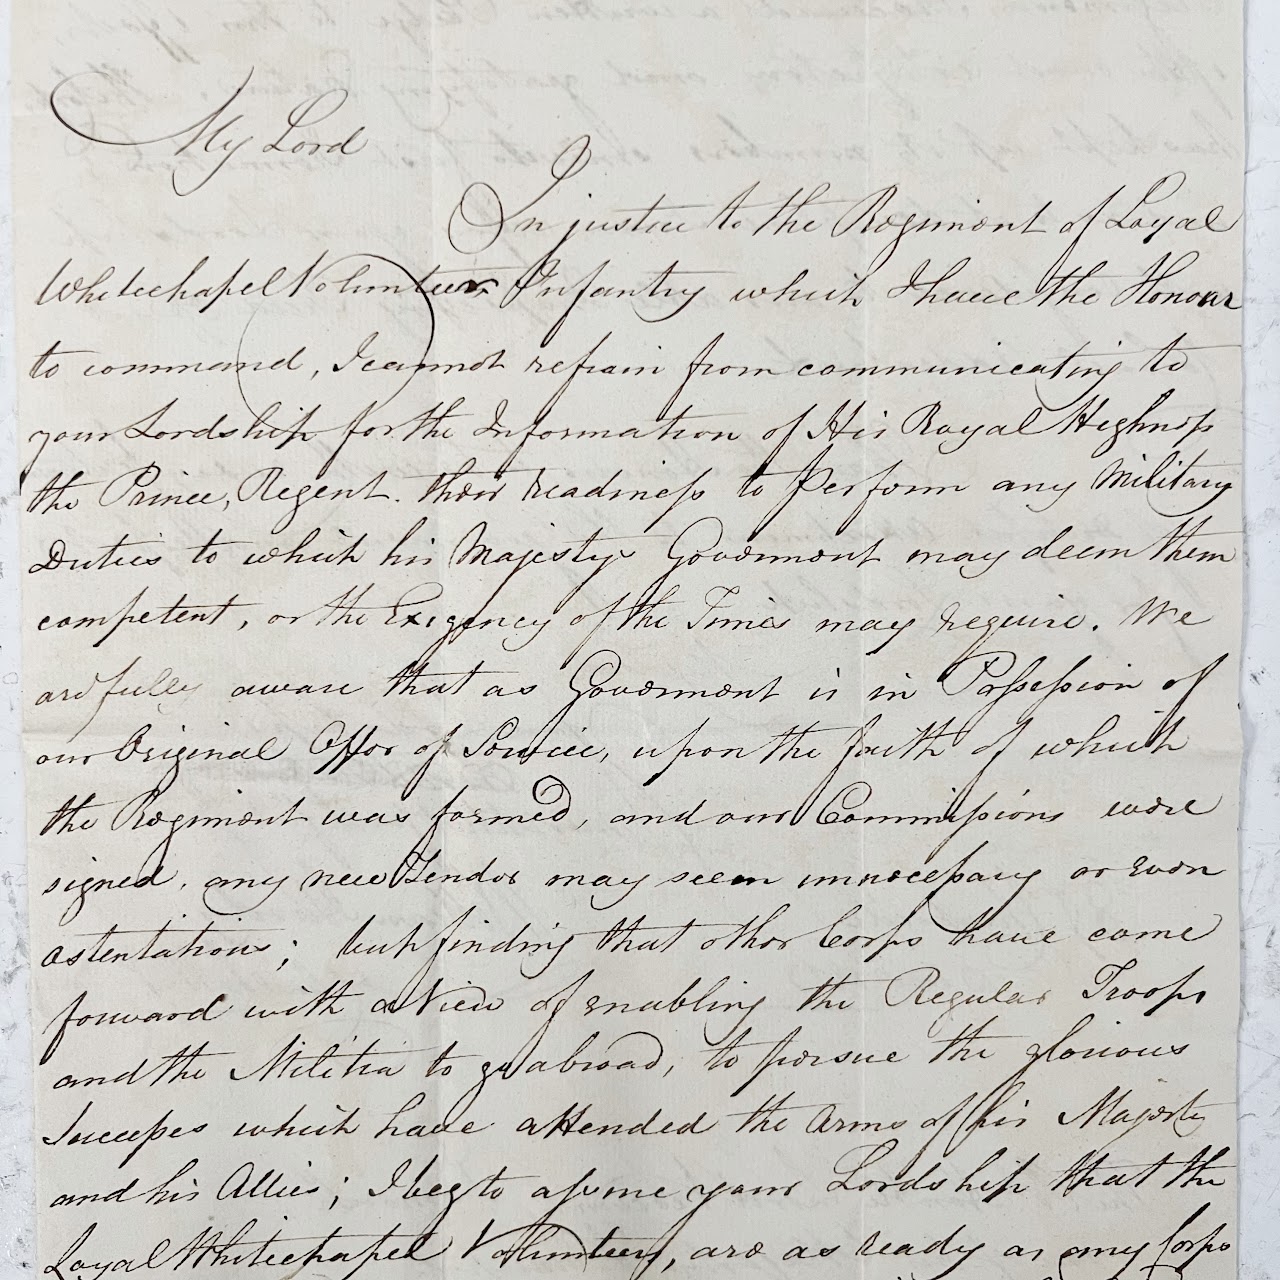 My Lord
In justice to the Regiment of Loyal
Whitechapel Volunteer Infantry which I have the Honour
to command, I cannot refrain from communicating to
your Lordship for the Information of His Royal Highness
the Prince, Regent. their readiness to Perform any Military
Duties to which his Majestys Government may deem them
competent, or the Exigency of the Times may require. We
are fully aware that as Government is in Possession of
our Original Offer of Service, upon the faith of which
the Regiment was formed, and our Commissions were
signed, any new Tender may seem unnecessary or even
ostentatious; but finding that other Corps have come
forward with a View of enabling the Regular Troops
and the Militia to go abroad, to persue the glorious
Successes which have attended the Arms of his Majesty
and his Allies; I beg to assure your Lordship that the
Loyal Whitechapel Volunteers, are as ready as any Corps